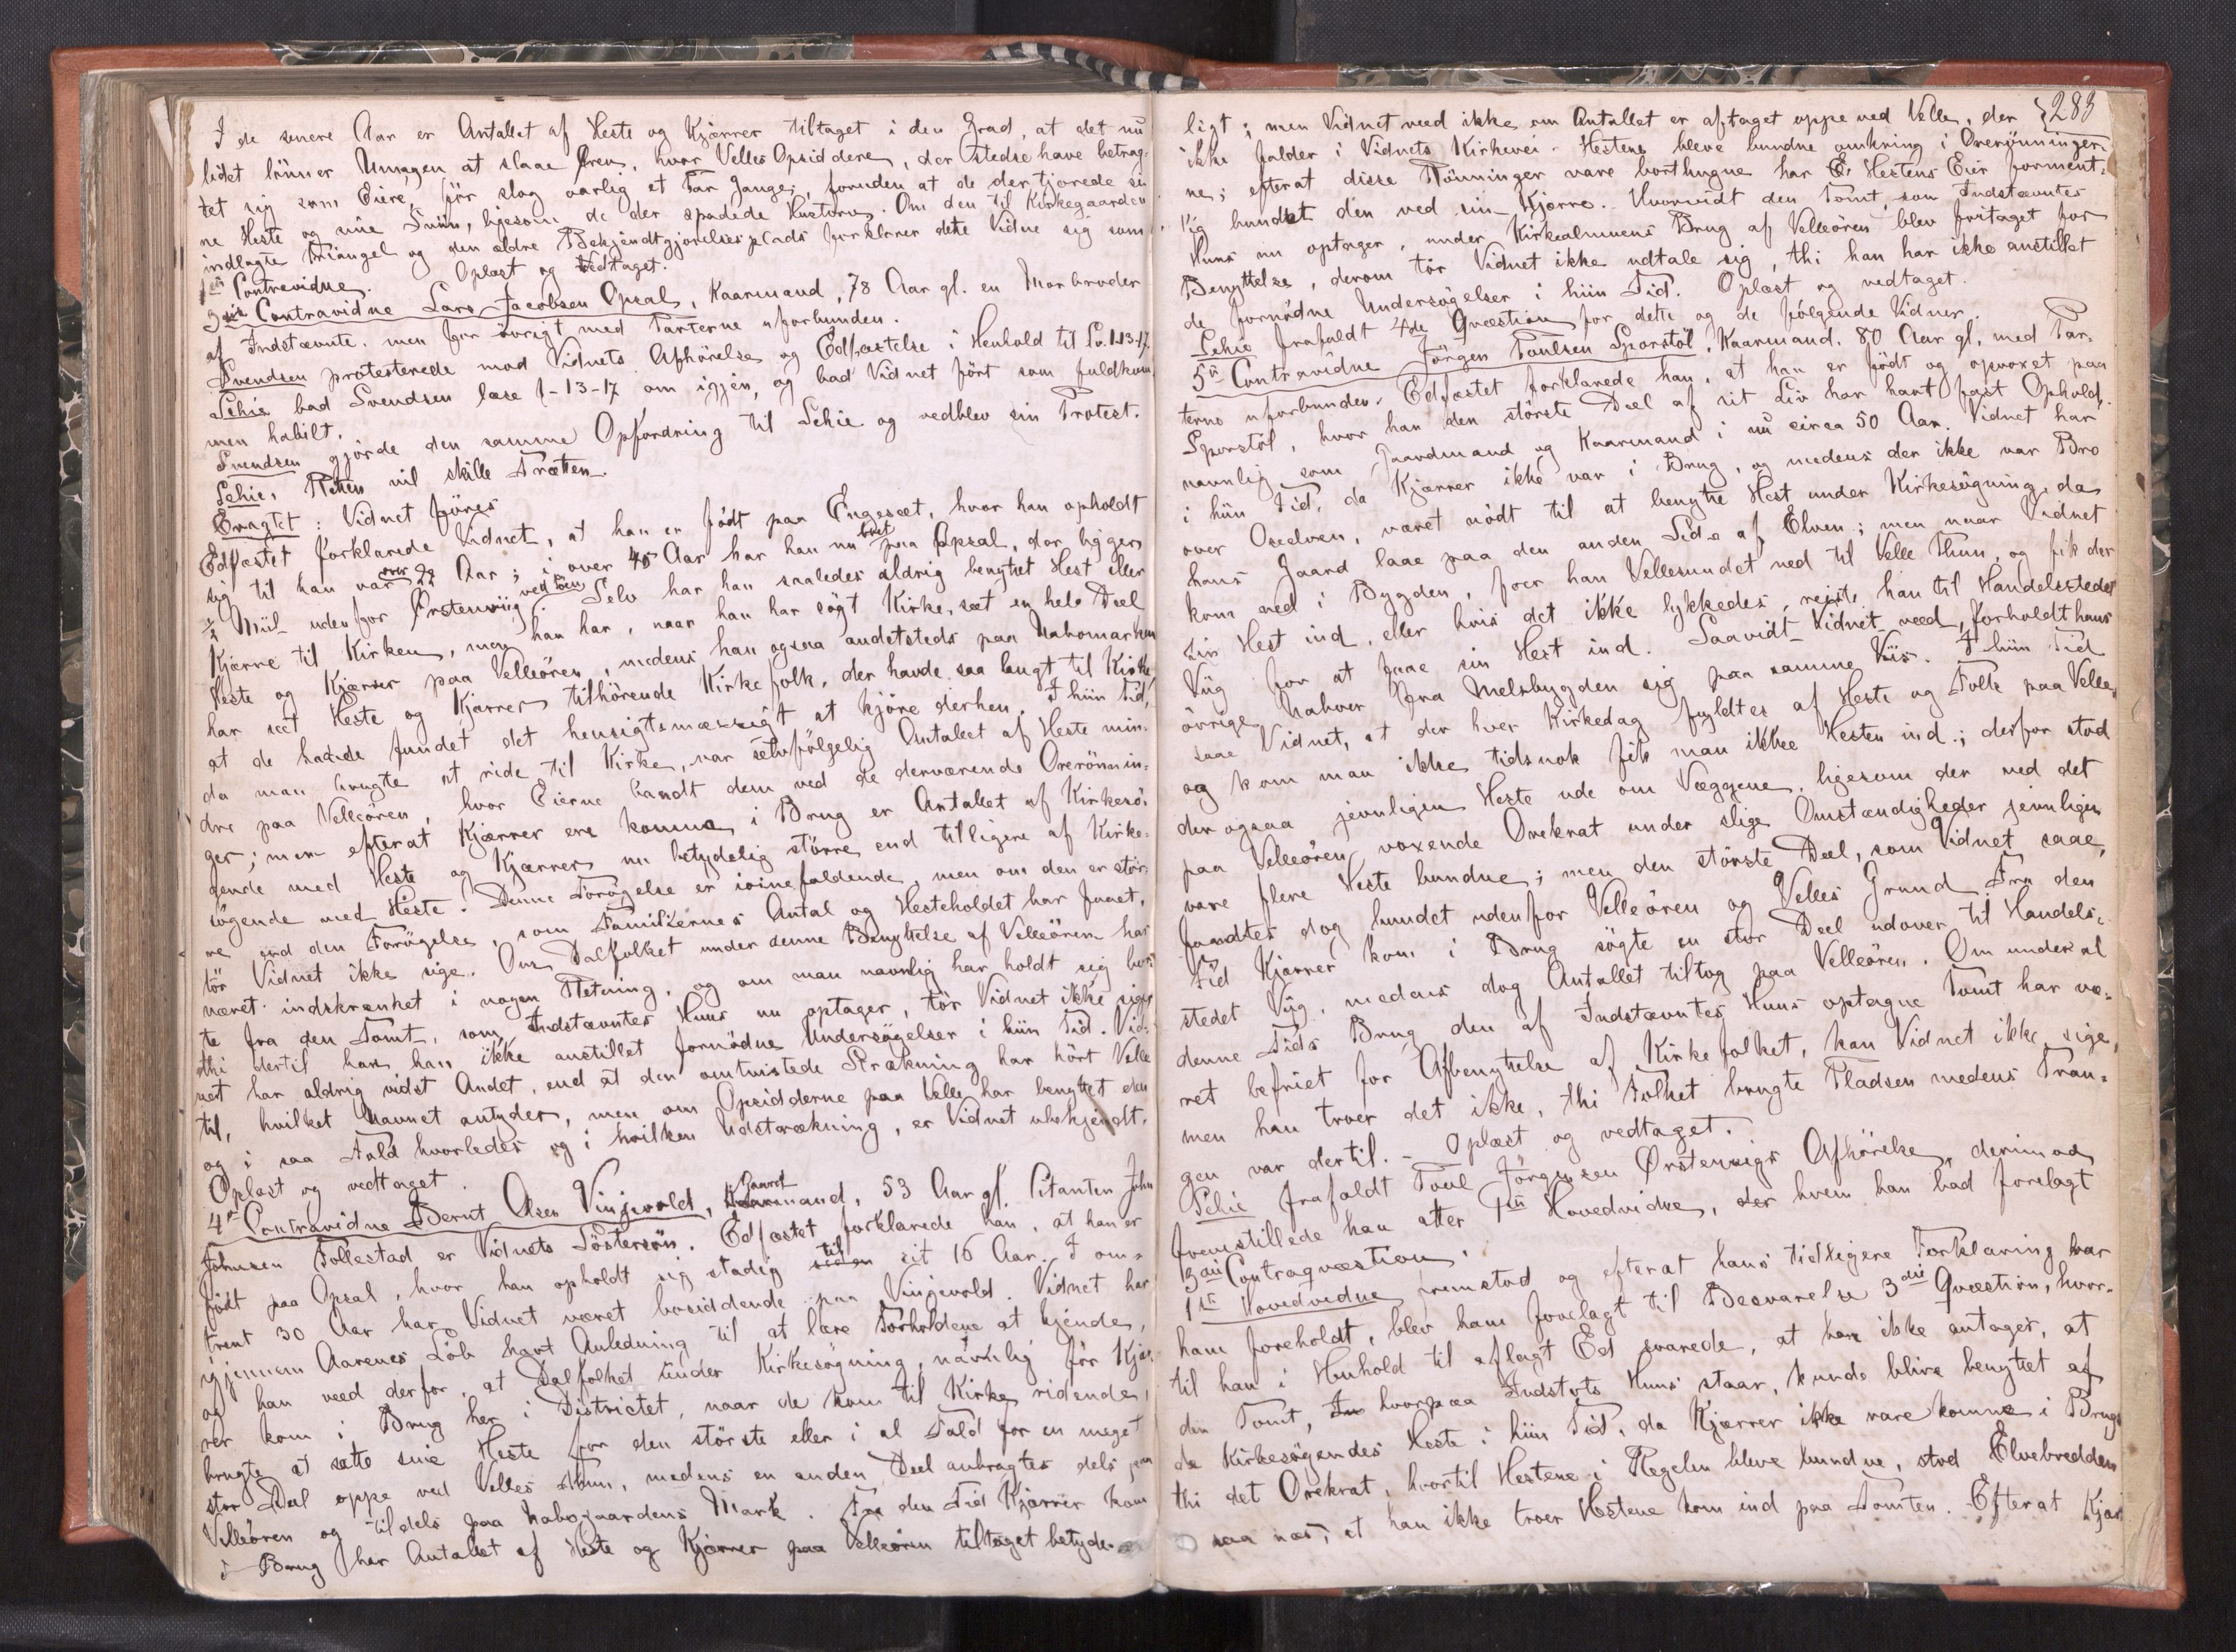 I de senere Aar er Antallet af Heste og Kjærrer tiltaget i den Grad, at det nu
lidet lönner Umagen at slaae Ören, hvor Velles Opsiddere, der stedse have betrag-
tet sig som Eiere, för slog aarlig et Par Gange, foruden at de der tjorede si-
ne Heste og sine Sviin, ligesom de der spadede Kusturv. Om den til Kirkegaarden
indlagte Triangel og den ældre Bekjendtgjörelsesplads forklarer dette Vidne sig som
1ste Contravidne. Oplæst og vedtaget.
3die Contravidne Lars Jacobsen Opsal, Kaarmand, 78 Aar gl. en Morbroder
af Indstævnte, men for övrigt med Parterne uforbunden.
Svendsen protesterede mod Vidnets Afhörelse og Edfæstelse i Henhold til Lv. 1-13-17.
Sehie bad Svendsen læse 1-13-17 om igjen, og bad Vidnet fört som fuldkom-
men habilt.
Svendsen gjörde den samme Opfordring til Sehie og vedblev sin Protest.
Sehie, Retten vil skille Trætten.
Eragtet: Vidnet föres
Edfæstet forklarede Vidnet, at han er födt paa Engeset, hvor han opholdt
sig til han var over 22 Aar; i over 40 Aar har han nu boet paa Opsal, der ligger
½ Miil udenfor Örstenviig ved Söen. Selv har han saaledes aldrig benyttet Hest eller
Kjærre til Kirken, men han har, naar han har sögt Kirke, seet en hel Deel
Heste og Kjærrer paa Velleören, medens han ogsaa andetsteds paa Nabomarken
har seet Heste og Kjærrer tilhörende Kirkefolk, der havde saa langt til Kirke,
at de havde fundet det hensigtsmæssigt at kjöre derhen. I hiin Tid,
da man brugte at ride til Kirke, var selvfölgelig Antallet af Heste min-
dre paa Velleören, hvor Eierne bandt dem ved de derværende Orerönnin-
ger; men efterat Kjærrer ere komne i Brug er Antallet af Kirkesö-
gende med Heste og Kjærrer nu betydelig större end tilligere af Kirke-
sögende med Heste. Denne Forögelse er iöinefaldende, men om den er stör-
re end den Forögelse, som Familiernes Antal og Hesteholdet har faaet,
tör Vidnet ikke sige. Om Dalfolket under denne Benyttelse af Velleören har
været indskrænket i nogen Retning, og om man navnlig har holdt sig bor-
te fra den Tomt, som Indstævntes Huus nu optager, tör Vidnet ikke sige,
thi dertil har han ikke anstillet fornödne Undersögelser i hiin Tid. Vid-
net har aldrig vidst Andet, end at den omtvistede Strækning har hört Velle
til, hvilket Navnet antyder, men om Opsidderne paa Velle har benyttet den
og i saa Fald hvorledes og i hvilken Udstrækning, er Vidnet ubekjendt.
Oplæst og vedtaget.
4de Contravidne Bernt Olsen Vinjevold, Gaardmand, 53 Aar gl. Citanten John
Johnsen Follestad er Vidnets Söstersön. Edfæstet forklarede han, at han er
födt paa Opsal, hvor han opholdt sig stadig til sit 16 Aar. I om-
trent 30 Aar har Vidnet været bosiddende paa Vinjevold. Vidnet har
igjennem Aarenes Löb havt Anledning til at lære Forholdene at kjende,
og han veed derfor, at Dalfolket under Kirkesögning, navnlig för Kjær-
rer kom i Brug her i Districtet, naar de kom til Kirke ridende,
brugte at sætte sine Heste for den störste eller i al Fald for en meget
stor Deel oppe ved Velles Thun, medens en anden Deel anbragtes dels paa
Velleören og tildels paa Nabogaardens Mark. Fra den Tid Kjærrer kom
i Brug har Antallet af Heste og Kjærrer paa Velleören tiltaget betyde-
283
ligt; men Vidnet veed ikke om Antallet er aftaget oppe ved Velle, der
ikke falder i Vidnets Kirkevei. Hestene bleve bundne omkring i Orerönninger-
ne; efterat disse Rönninger vare borthugne har Hestens Eier forment-
lig bundet den ved sin Kjærre. Hvorvidt den Tomt, som Indstævntes
Huus nu optager, under Kirkealmuens Brug af Velleören blev fritaget for
Benyttelse, derom tör Vidnet ikke udtale sig, thi han har ikke anstillet
de fornödne Undersögelser i hiin Tid. Oplæst og vedtaget.
Sehie frafaldt 4de Qvæstion for dette og de fölgende Vidner.
5te Contravidne Jörgen Poulsen Sporstöl, Kaarmand, 80 Aar gl., med Par-
terne uforbunden. Edfæstet forklarede han, at han er födt og opvoxet paa
Sporstöl, hvor han den störste Deel af sit Liv har havt fast Ophold,
navnlig som Gaardmand og Kaarmand i nu circa 50 Aar. Vidnet har
i hiin Tid, da Kjærrer ikke var i Brug, og medens der ikke var Bro
over Oselven, været nödt til at benytte Hest under Kirkesögning, da
hans Gaard laae paa den anden Side af Elven; men naar Vidnet
kom ned i Bygden, foer han Vellesundet ned til Velle Thun, og fik der
sin Hest ind, eller hvis det ikke lykkedes, reiste han til Handelsstedet
Viig for at faae sin Hest ind. Saavidt Vidnet veed, forholdt hans
övrige Naboer fra Melsbygden sig paa samme Viis. I hiin Tid
saae Vidnet, at der hver Kirkedag fyldtes af Heste og Folk paa Velle,
og kom man ikke tidsnok fik man ikke Hesten ind; derfor stod
der ogsaa jevnligen Heste ude om Væggene, ligesom der ved det
paa Velleören voxende Orekrat under slige Omstændigheder jevnligen
vare flere Heste bundne; men den störste Deel, som Vidnet saae,
fandtes dog bundet udenfor Velleören og Velles Grund. Fra den
Tid Kjærrer kom i Brug sögte en stor Deel udover til Handels-
stedet Viig, medens dog Antallet tiltog paa Velleören. Om under al
denne Tids Brug den af Indstævntes Huus optagne Tomt har væ-
ret befriet for Afbenyttelse af Kirkefolket, kan Vidnet ikke sige,
men han troer det ikke, thi Folket brugte Pladsen medens Tran-
gen var dertil. – Oplæst og vedtaget.
Sehie frafaldt Poul Jörgensen Ørstenvigs Afhörelse, derimod
fremstillede han atter 1ste Hovedvidne, der hvem han bad forelagt
3die Contraqvæstion.
1ste Hovedvidne fremstod og efterat hans tidligere Forklaring var
ham foreholdt, blev ham forelagt til Besvarelse 3die Qvæstion, hvor-
til han i Henhold til aflagt Ed svarede, at han ikke antager, at
den Tomt, hvorpaa Indstvts Huus staar, kunde blive benyttet af
de Kirkesögendes Heste i hiin Tid, da Kjærrer ikke vare komne i Brug,
thi det Orekrat, hvortil Hestene i Regelen bleve bundne, stod Elvebredden
saa nær, at han ikke troer Hestene kom ind paa Tomten. Efterat Kjær